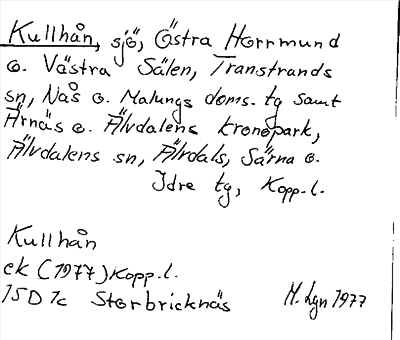 Kullhån, sjö, Östra Horrmund
o. Västra Sälen, Transtrands
sn, Nås o. Malungs doms. tg samt
Ärnäs o. Älvdalens kronopark,
Älvdalens sn, Älvdals, Särna o.
Idre tg, Kopp. l.
Kullhån
ek (1977) Kopp. l.
15D 1c Storbricknäs M. Lgn 1977